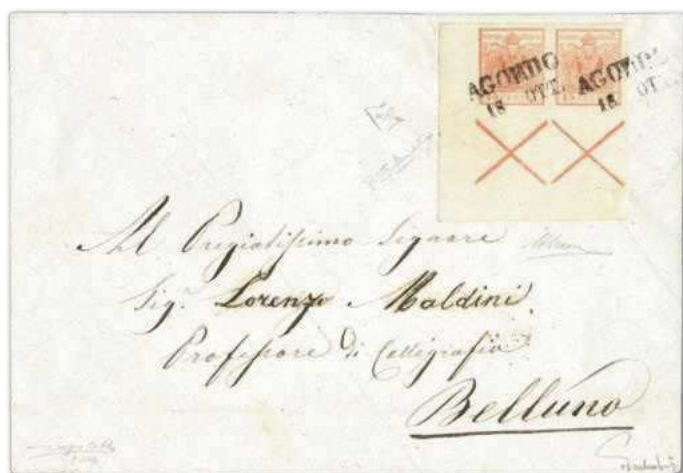 AGORDO AGORD
18 OTT. 18 OT
Al Pregiatissimo Signore
Sig.r Lorenzo Maldini
Professore di Calligrafia
Belluno